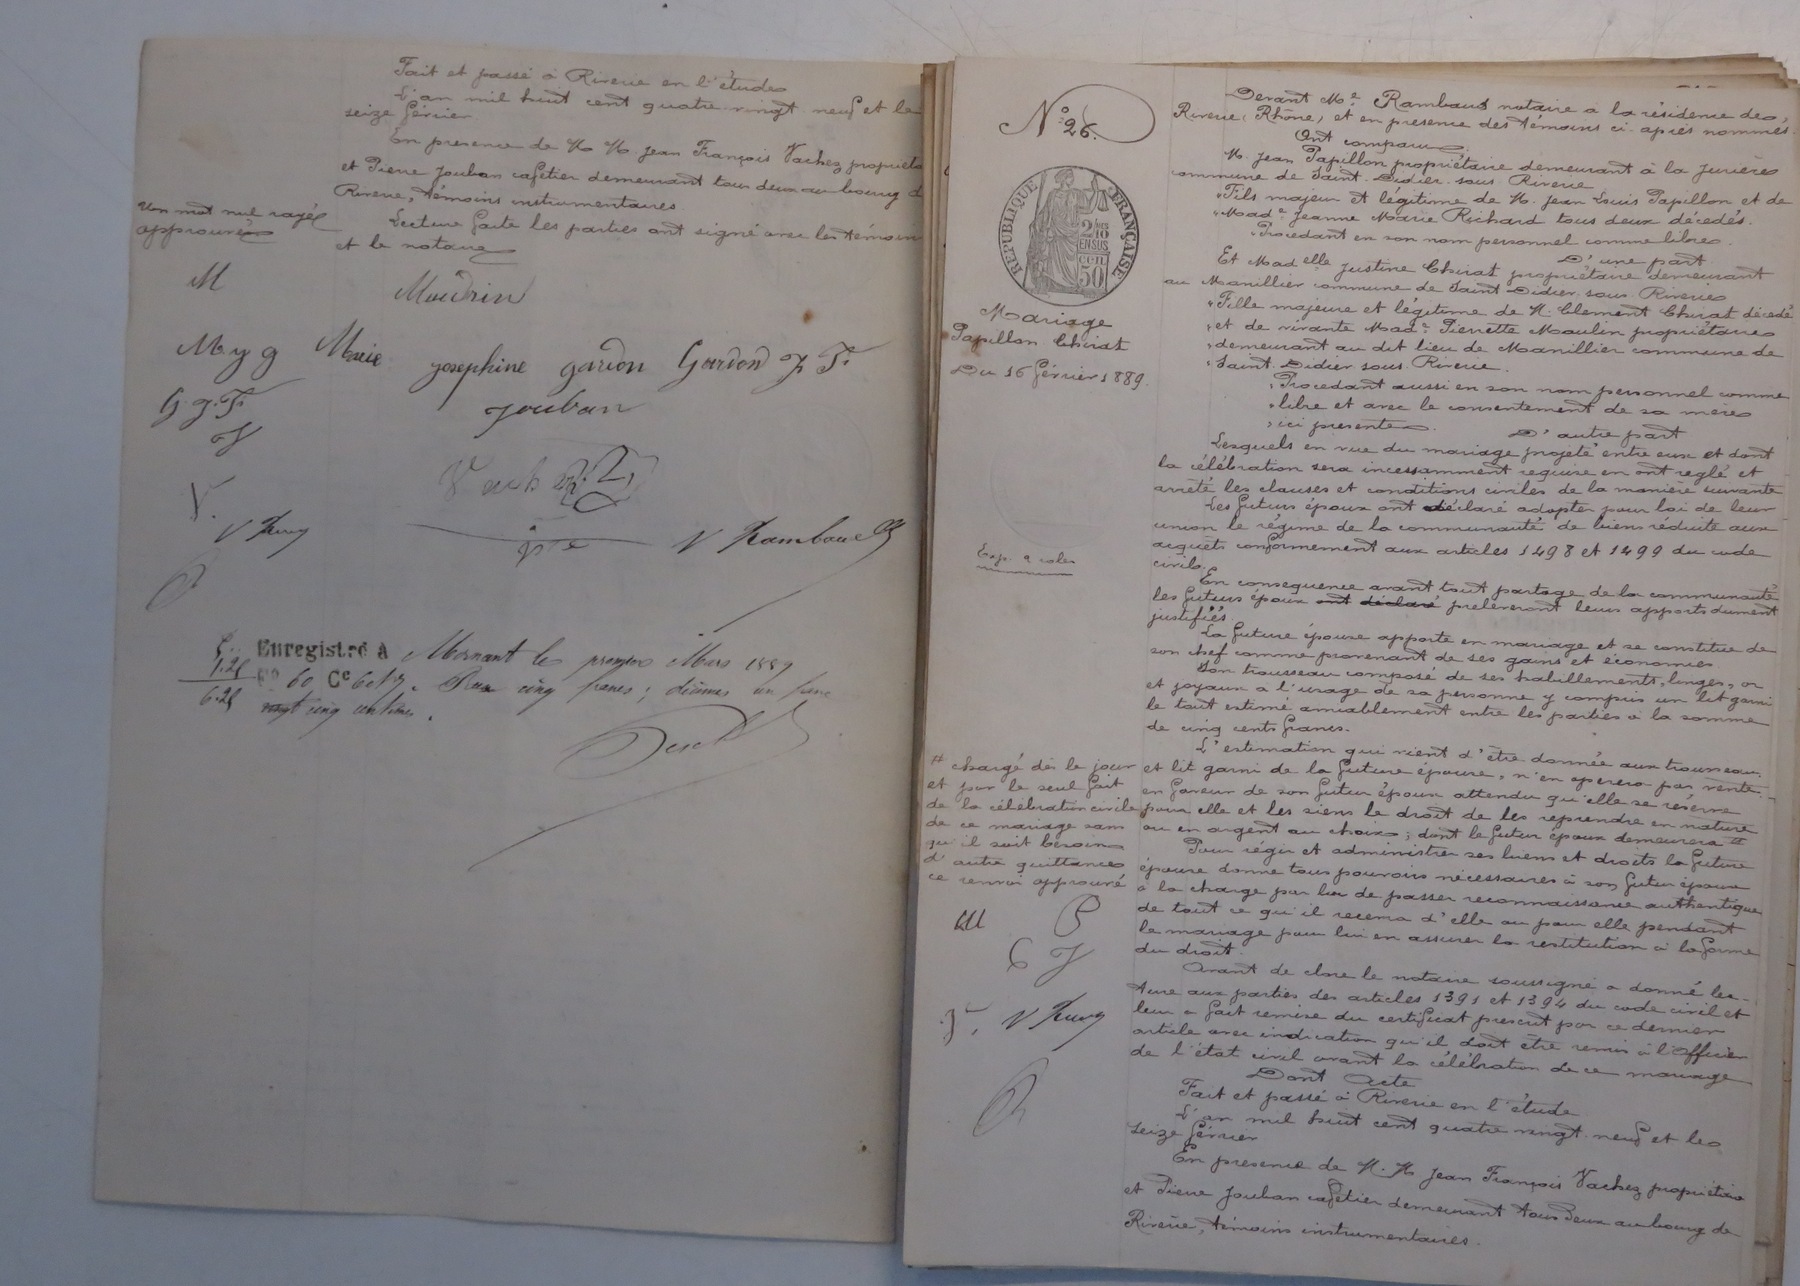 Fait et passé à Riverie en l'étude
L'an mil huit cent quatre vingt neuf et le
seize février
En présence de M. M. Jean François Vachez propriéta
et Pierre Jouban cafetier demeurant tous deux au bourg d
Riverie, témoins instrumentaires.
Lecture faite les parties ont signé avec les témoins
et le notaire
Un mot nul rayé
approuvé
M
Moudrin
M y g
Marie josephine gardon Gardon J. F.
G. J. F.
Jouban
J
Vachez
V.
Rambaud
Enregistré à Mornant le premier Mars 1889
fo 60 Ce 6 et 7. Reçu cinq francs; décimes un franc
vingt cinq centimes.
5..
1.25
6.25
No 26.
RÉPUBLIQUE FRANÇAISE
2/10
EN SUS
50
Mariage
Papillon Chirat
Du 16 février 1889.
Devant Me Rambaud notaire à la résidence de
Riverie (Rhône) et en présence des témoins ci-après nommés.
Ont comparu:
M. Jean Papillon propriétaire demeurant à la Jurière
commune de Saint-Didier-sous-Riverie
"Fils majeur et légitime de M. Jean Louis Papillon et de
"Made Jeanne Marie Richard tous deux décédés.
"Procédant en son nom personnel comme libre.
D'une part
Et Madelle Justine Chirat propriétaire demeurant
au Manillier commune de Saint-Didier-sous-Riverie
"Fille majeure et légitime de M. Clément Chirat décédé
"et de vivante Made Pierrette Moulin propriétaire
"demeurant au dit lieu de Manillier commune de
"Saint-Didier-sous-Riverie.
"Procédant aussi en son nom personnel comme
"libre et avec le consentement de sa mère
"ici présente.
D'autre part
Lesquels en vue du mariage projeté entre eux et dont
la célébration sera incessamment requise en ont réglé et
arrêté les clauses et conditions civiles de la manière suivante
Les futurs époux ont déclaré adopter pour loi de leur
union le régime de la communauté de biens réduite aux
acquêts conformément aux articles 1498 et 1499 du code
civil.
En conséquence avant tout partage de la communauté
les futurs époux ont déclaré prélèveront leurs apports dument
justifiés
La future épouse apporte en mariage et se constitue de
son chef comme provenant de ses gains et économies
Son trousseau composé de ses habillements, linges, or
et joyaux à l'usage de sa personne y compris un lit garni
le tout estimé amiablement entre les parties à la somme
de cinq cents francs.
L'estimation qui vient d'être donnée aux trousseau
et lit garni de la future épouse, n'en opèrera pas vente
en faveur de son futur époux attendu qu'elle se réserve
pour elle et les siens le droit de les reprendre en nature
ou en argent au choix; dont le futur époux demeurera #
# chargé dès le jour
et par le seul fait
de la célébration civile
de ce mariage sans
qu'il soit besoin
d'autre quittance
ce renvoi approuvé
Pour régir et administrer ses biens et droits la future
épouse donne tous pouvoirs nécessaires à son futur époux
à la charge par lui de passer reconnaissance authentique
de tout ce qu'il recevra d'elle ou pour elle pendant
le mariage pour lui en assurer la restitution à la forme
du droit.
Avant de clore le notaire soussigné a donné lec-
ture aux parties des articles 1391 et 1394 du code civil et
leur a fait remise du certificat prescrit par ce dernier
article avec indication qu'il doit être remis à l'officier
de l'état civil avant la célébration de ce mariage
Dont Acte
Fait et passé à Riverie en l'étude
L'an mil huit cent quatre vingt neuf et le
seize février
En présence de M. M. Jean François Vachez propriétaire
et Pierre Jouban cafetier demeurant tous deux au bourg de
Riverie, témoins instrumentaires.